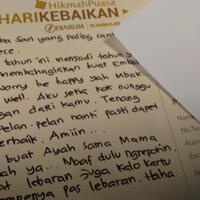 HikmahPuasa
HARIKEBAIKAN
DJARUM
Sari yang paling can
tahun ini menjadi tahun y
membahagiakan buat Emba
worry be happy yah Mbak
well. Aku setia kok nunggu
dari kamu. Tenang
Pelan-pelan nanti pasti dapet
terbaik. Amiin...
buat Ayah sama Mama
yah ya... Maaf dulu ngrepotin.
lebaran juga kalo kartu
pas lebaran. Haha.
No.Te
Alam